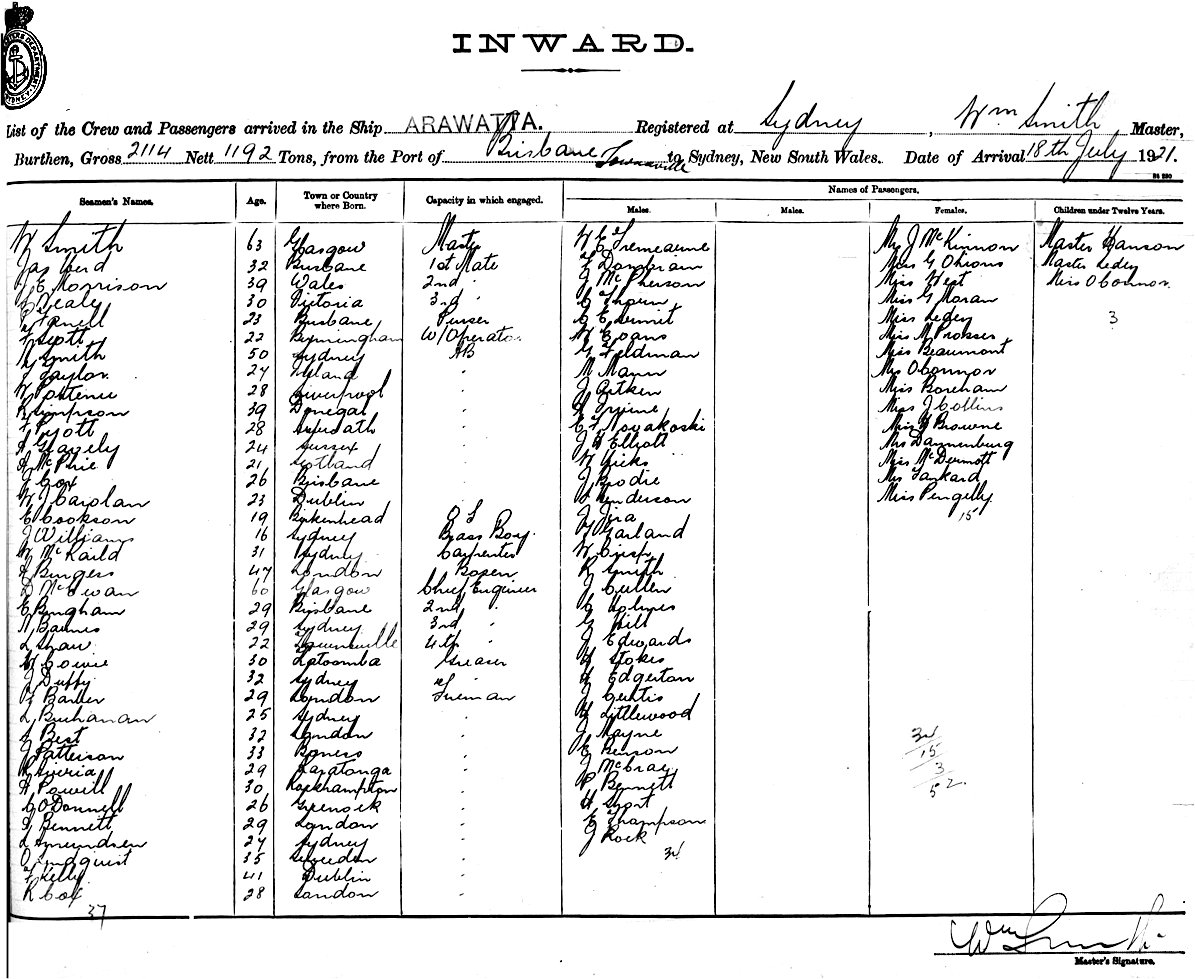 INWARD.
List of the Crew and Passengers arrived in the Ship ARAWATTA. Registered at Sydney, Wm Smith Master,
Burthen, Gross 2114 Nett 1192 Tons, from the Port of Brisbane Townsville to Sydney, New South Wales. Date of Arrival 18th July 1921.
Seamen's Names. Age. Town or Country where Born. Capacity in which engaged. Names of Passengers.
Males. Males. Females. Children under Twelve Years.
W Smith 63 Glasgow Master
32 Brisbane 1st Mate
J E Morrison 39 Wales 2nd "
Nealy 30 Victoria 3rd "
23 Brisbane Purser
Scott 22 Birmingham W/Operator
Smith 50 Sydney AB
J Taylor 24 "
W Postence 28 Liverpool "
R Simpson 39 Donegal "
Pyott 28 "
A Gravely 24 Sussex "
A McPhie 21 Scotland "
J Cox 26 Brisbane "
W J Carolan 23 Dublin "
E Cookson 19 Birkenhead O S
J Williams 16 Sydney Brass Boy
W McKaild 31 Sydney Carpenter
A Burgess 47 London Bosen
D McEwan 60 Glasgow Chief Engineer
E Bingham 29 Brisbane 2nd "
Barnes 29 Sydney 3rd "
L Shaw 22 Townsville 4th "
Cowie 30 Latoomba Greaser
J Duffy 32 Sydney "
Barber 29 London Fireman
L Buchanan 25 Sydney "
Best 32 London "
J Patterson 33 Boness "
29 Raratonga "
A Powell 30 Rockhampton "
C O'Donnell 26 Greenock "
Bennett 29 London "
L Amundsen 24 Sydney "
O Lindquist 35 Sweden "
Kelly 41 Dublin "
R Cox 28 London "
37
W E Tremearne
J McPherson
C E
W Evans
G Feldman
M Mann
J Aitken
Irvine
E F Novakoski
J H Elliott
W Hicks
J Brodie
Henderson
J Jira
Garland
W Crisp
R Smith
J Cullen
C Holmes
G Hill
J Edwards
H Stokes
H Edgerton
J Curtis
H Littlewood
J Mayne
E Benson
J McCray
P Bennett
H Short
E Thompson
J Rock
34
Mrs J McKinnon
Miss G Ohrons
Miss West
Miss G Moran
Miss Ledey
Miss M Prosser
Miss Beaumont
Mrs O'Connor
Miss Boreham
Miss J Collins
Miss Browne
Mrs Dannenburg
Miss McDermott
Mrs Tankard
Miss Pengelly
15
34
15
3
52
Master Hanson
Master Ledey
Miss O'Connor
3
Wm Smith
Master's Signature.